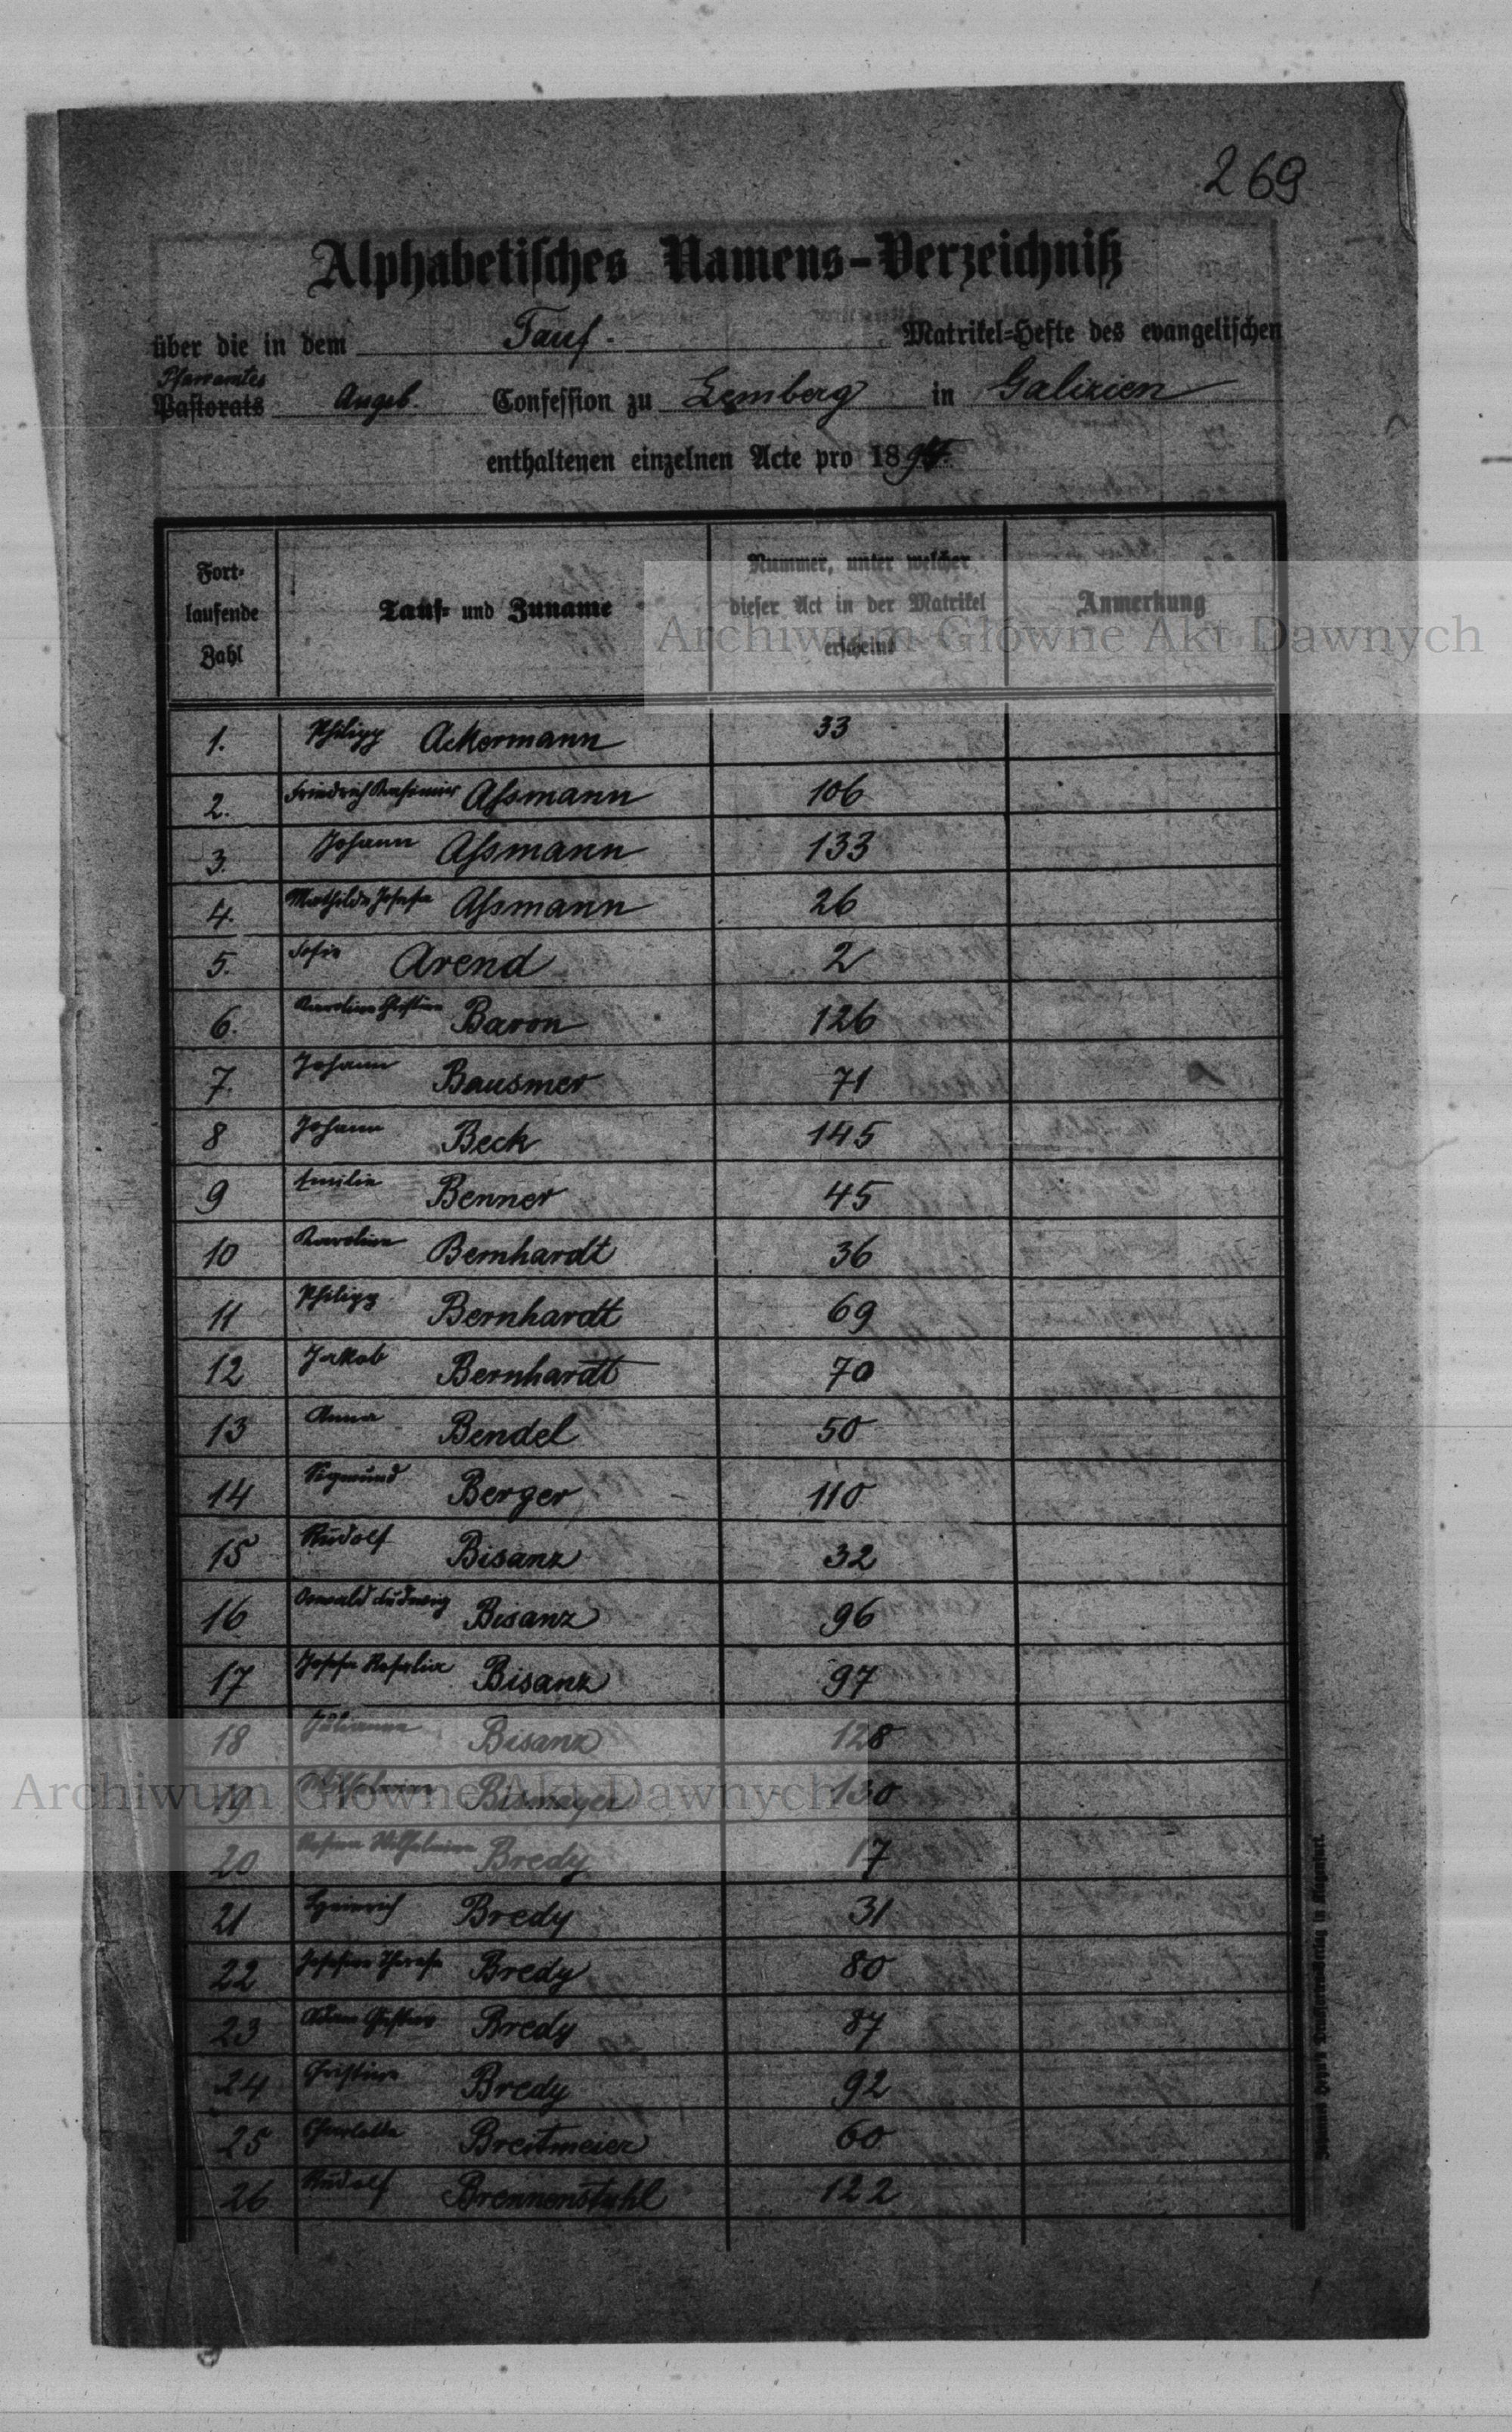 269
Alphabetisches Namens-Verzeichniß
über die in dem Tauf- Matrikel-Hefte des evangelischen
Pfarramtes
Pastorats Augsb. Confession zu Lemberg in Galizien
enthaltenen einzelnen Acte pro 1894.
Fort-
laufende
Zahl
Tauf- und Zuname
Nummer, unter welcher
dieser Act in der Matrikel
erscheint
Anmerkung
Archiwum Główne Akt Dawnych
1. Philipp Ackermann 33
2. Friedrich Kasimir Assmann 106
3. Johann Assmann 133
4. Mathilde Josefa Assmann 26
5. Sofie Arend 2
6. Karoline Christine Baron 126
7. Johann Bausmer 71
8 Johann Beck 145
9 Emilie Benner 45
10 Karoline Bernhardt 36
11 Philipp Bernhardt 69
12 Jakob Bernhardt 70
13 Anna Bendel 50
14 Sigmund Berger 110
15 Rudolf Bisanz 32
16 Oswald Ludwig Bisanz 96
17 Josefa Rosalia Bisanz 97
18 Julianna Bisanz 128
19 Wilhelmine Bismayer 130
Archiwum Główne Akt Dawnych
20 Wilhelmine Bredy 17
21 Heinrich Bredy 31
22 Josefine Theresa Bredy 80
23 Adam Gustav Bredy 87
24 Christine Bredy 92
25 Charlotte Breitmeier 60
26 Rudolf Brennenstuhl 122